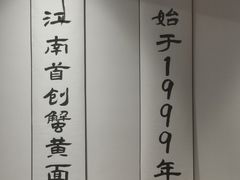 始于1999年
江南首创蟹黄面